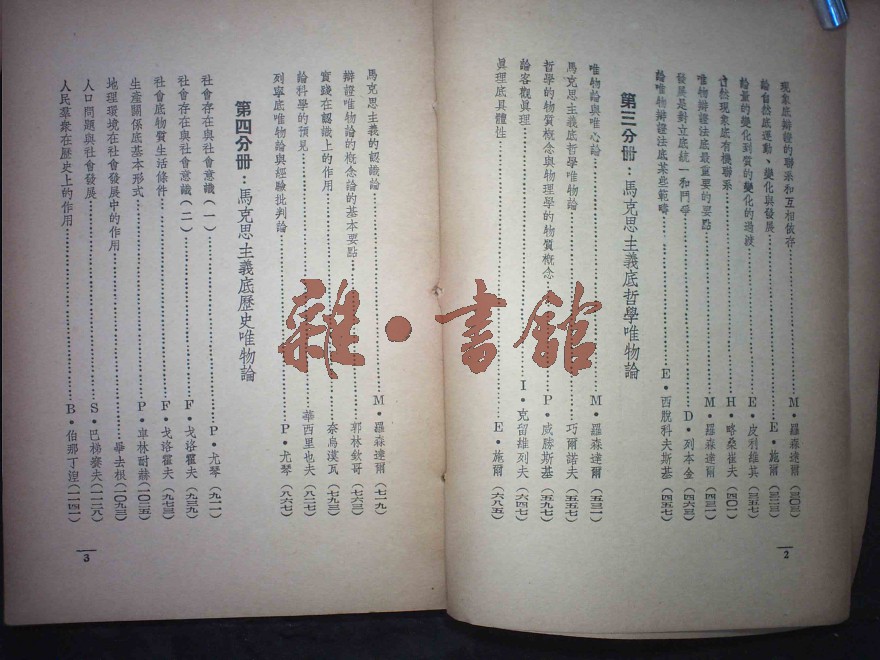 現象底辯證的聯系和互相依存……M·羅森達爾(三〇三)
論自然底運動、變化與發展……E·施爾(三二三)
論量的變化到質的變化的過渡……E·皮利維其(三五七)
自然現象底有機聯系……H·略桑崔夫(四〇一)
唯物辯證法底最重要的要點……M·羅森達爾(四三一)
發展是對立底統一和鬥爭……D·列本金(四六三)
論唯物辯證法底某些範疇……E·西脫科夫斯基(四五七)
第三分册:馬克思主義底哲學唯物論
唯物論與唯心論……M·羅森達爾(五三一)
馬克思主義底哲學唯物論……巧爾諾夫(五五七)
哲學的物質概念與物理學的物質概念……P·威勝斯基(五九七)
論客觀眞理……I·克留雄列夫(六四七)
眞理底具體性……E·施爾(六八五)
2
馬克思主義的認識論……M·羅森達爾(七一九)
辯證唯物論的概念論的基本要點……郭林欽哥(七六三)
實踐在認識上的作用……奈烏漠瓦(七九三)
論科學的預見……華西里也夫(八二七)
列寧底唯物論與經驗批判論……P·尤琴(八六七)
第四分册:馬克思主義底歷史唯物論
社會存在與社會意識(一)……P·尤琴(九一一)
社會存在與社會意識(二)……F·戈洛霍夫(九三九)
社會底物質生活條件……F·戈洛霍夫(九七三)
生產關係底基本形式……P·卑林耐赫(一〇二五)
地理環境在社會發展中的作用……畢去根(一〇九三)
人口問題與社會發展……S·巴梯婆夫(一一二八)
人民羣衆在歷史上的作用……B·伯那丁湼(一一四一)
3
雜·書舘